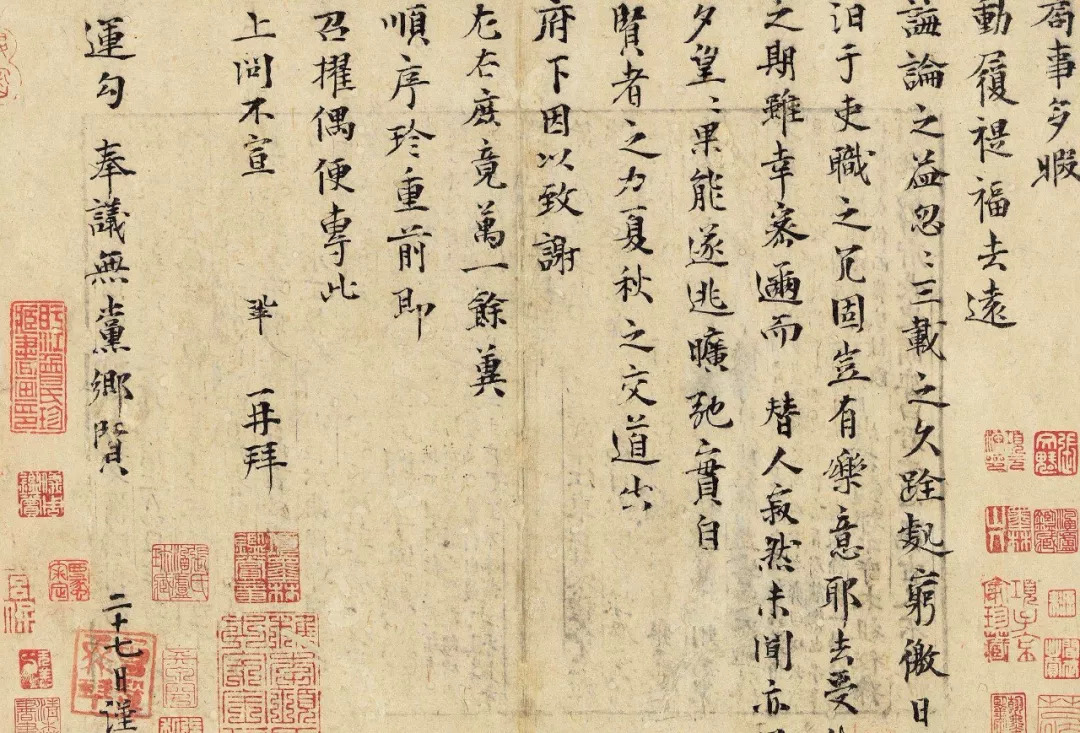 局事多暇
動履禔福去遠
誨論之益忽〻三載之久跧處窮徼日
汩于吏職之冗固豈有樂意耶去受
之期雖幸密邇而 替人寂然未聞亦
夕望〻果能遂逃曠弛實自
賢者之力夏秋之交道出
府下因以致謝
左右庶竟萬一餘冀
順序珍重前即
召擢偶便專此
上問不宣 鞏 再拜
運勾 奉議無黨鄉賢 二十七日謹